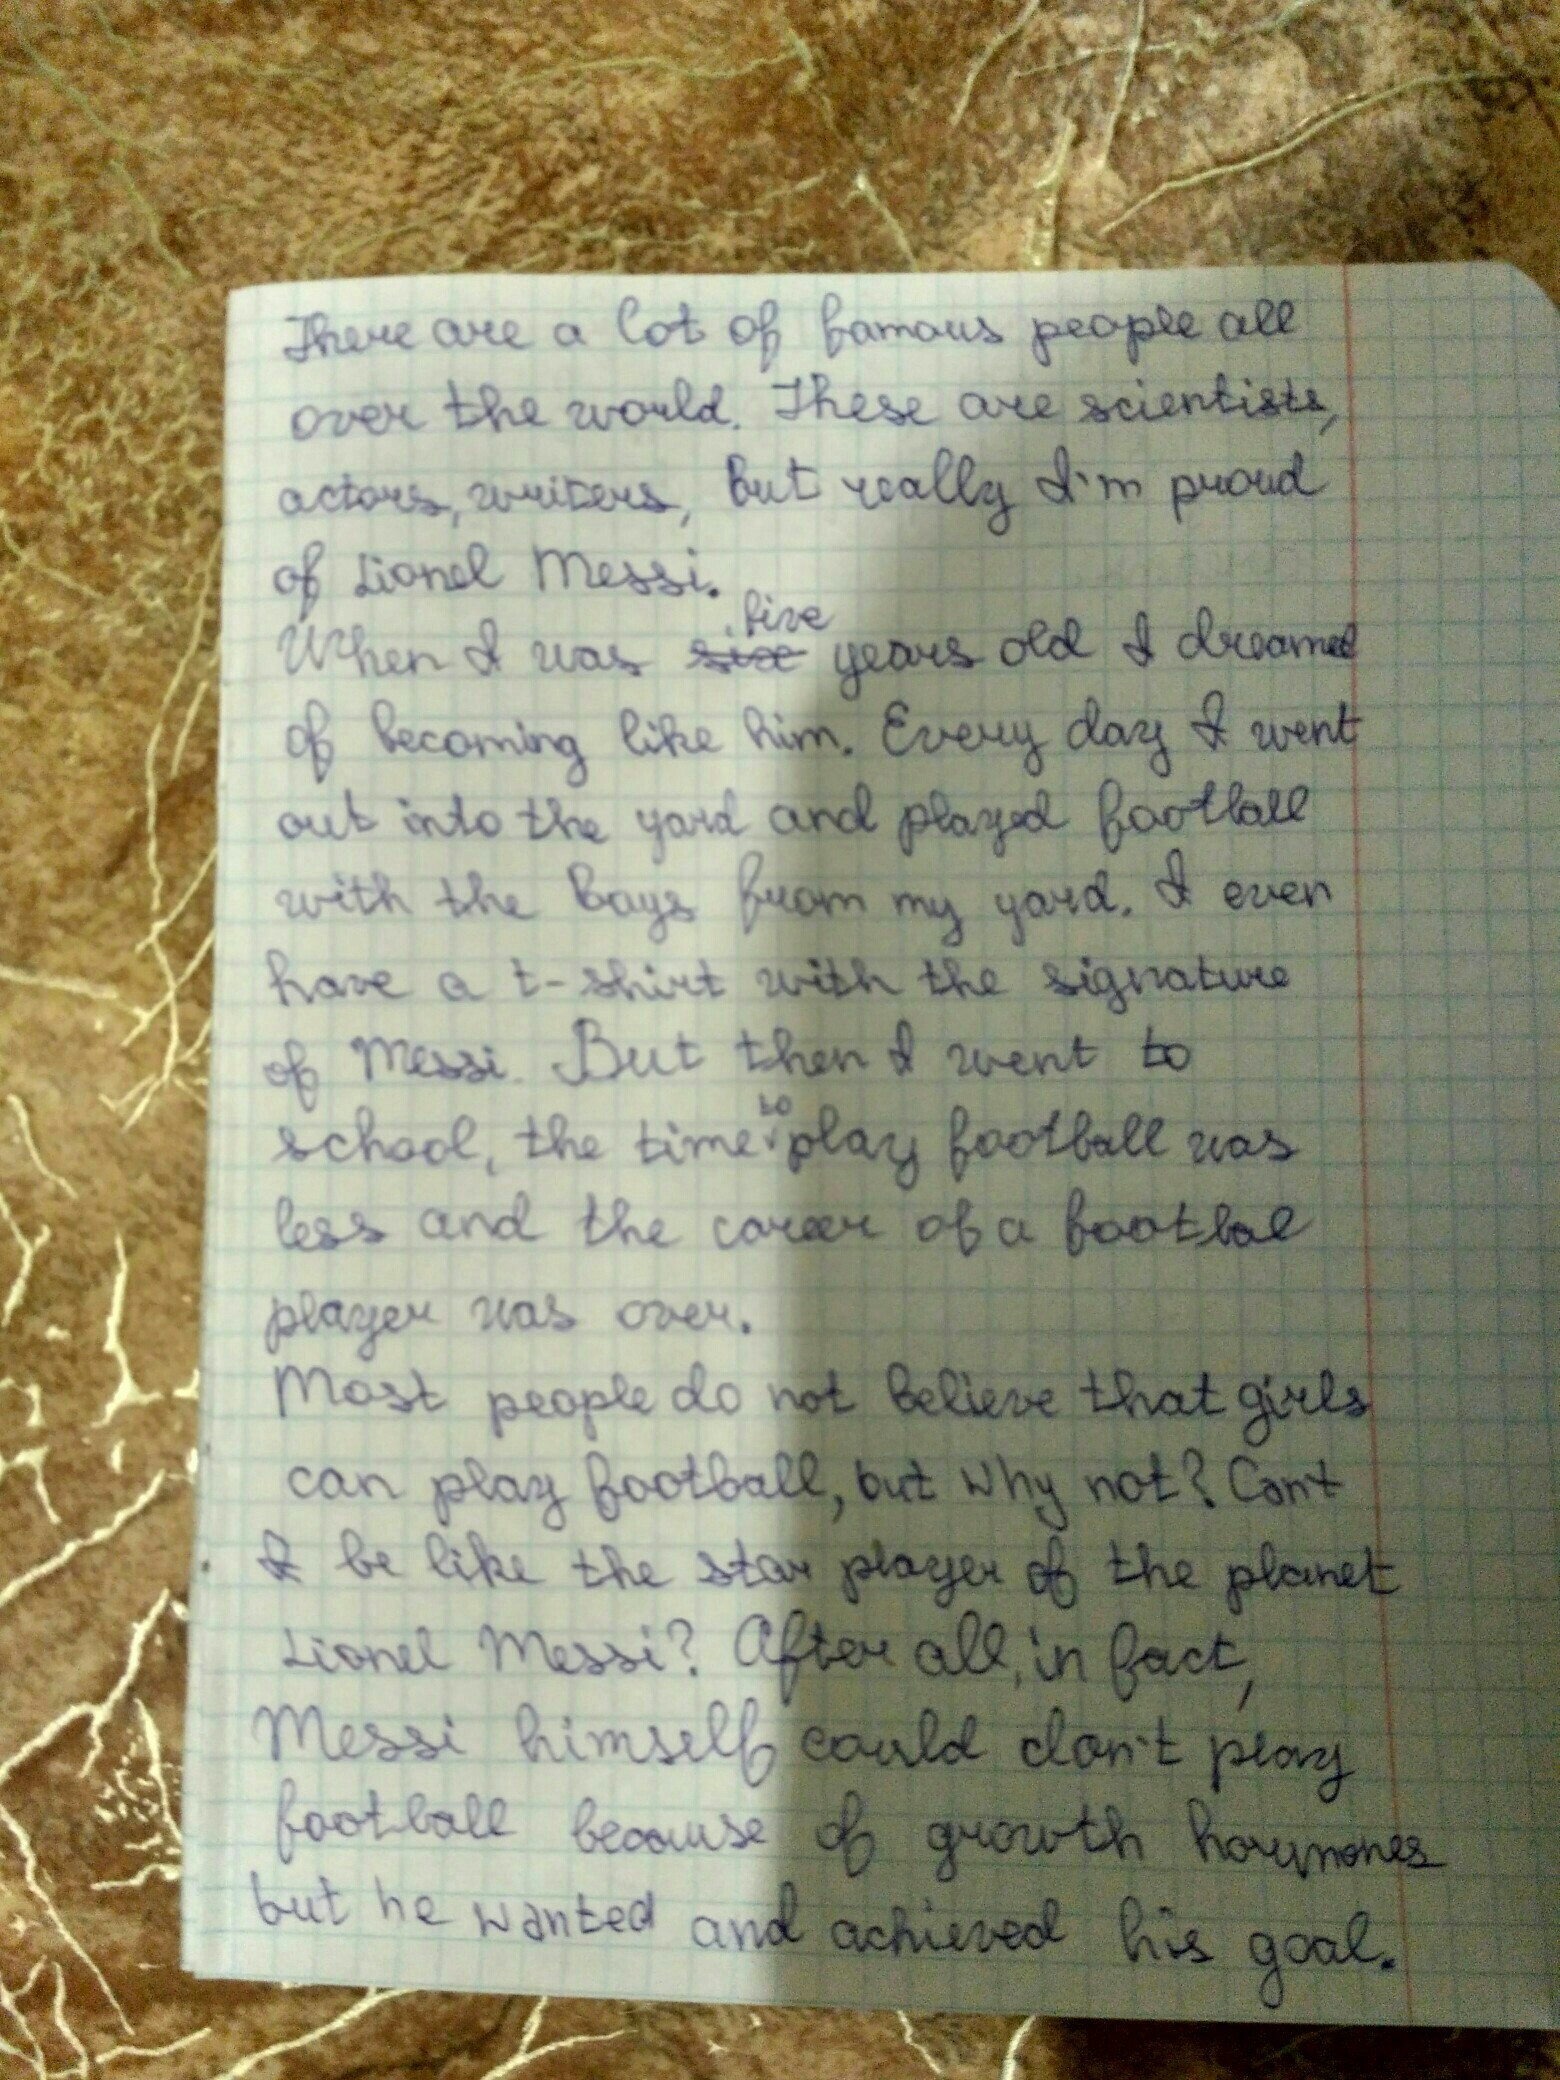 There are a lot of famous people all
over the world. These are scientists,
actors, writers, but really I'm proud
of Lionel Messi.
When I was five years old I dreamed
of becoming like him. Every day I went
out into the yard and played football
with the boys from my yard. I even
have a t-shirt with the signature
of Messi. But then I went to
school, the time to play football was
less and the career of a footbal
player was over.
Most people do not believe that girls
can play football, but why not? Can't
I be like the star player of the planet
Lionel Messi? After all, in fact,
Messi himself could don't play
football because of growth horymones
but he wanted and achieved his goal.